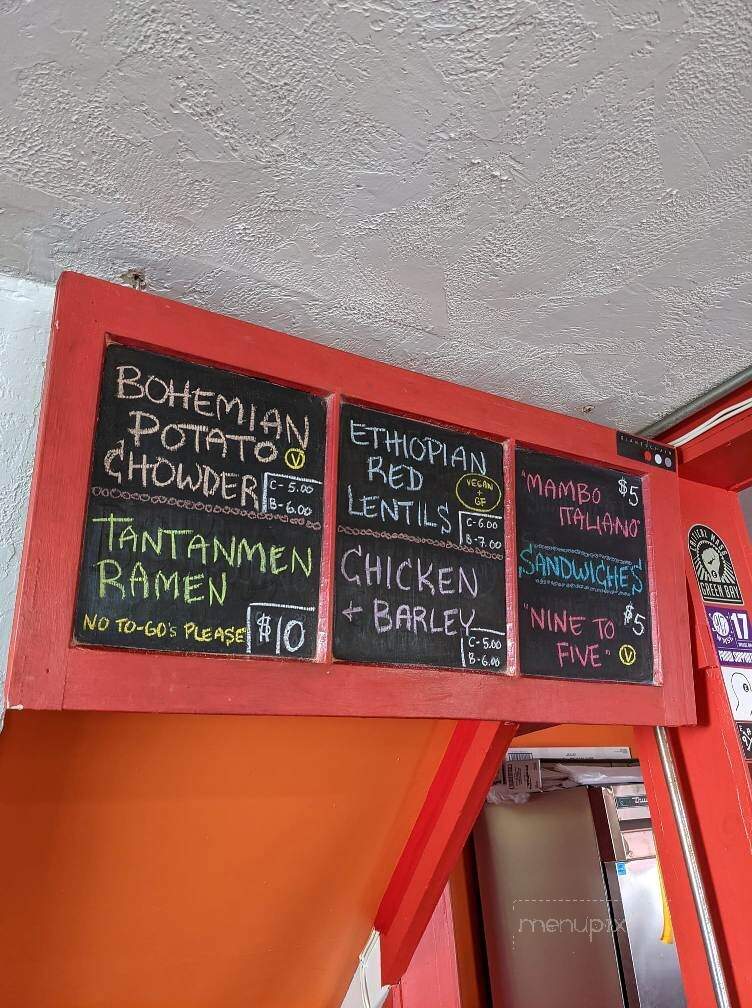 BOHEMIAN
POTATO V
CHOWDER
C-5.00
B-6.00
TANTANMEN
RAMEN
NO TO-GO's PLEASE
$10
ETHIOPIAN
RED
LENTILS
VEGAN
+
GF
C-6.00
B-7.00
CHICKEN
+ BARLEY
C-5.00
B-6.00
"MAMBO $5
ITALIANO"
SANDWICHES
"NINE TO $5
FIVE" V
CRITICAL MASS
GREEN BAY
17
PROUD SUPPORT
menupix